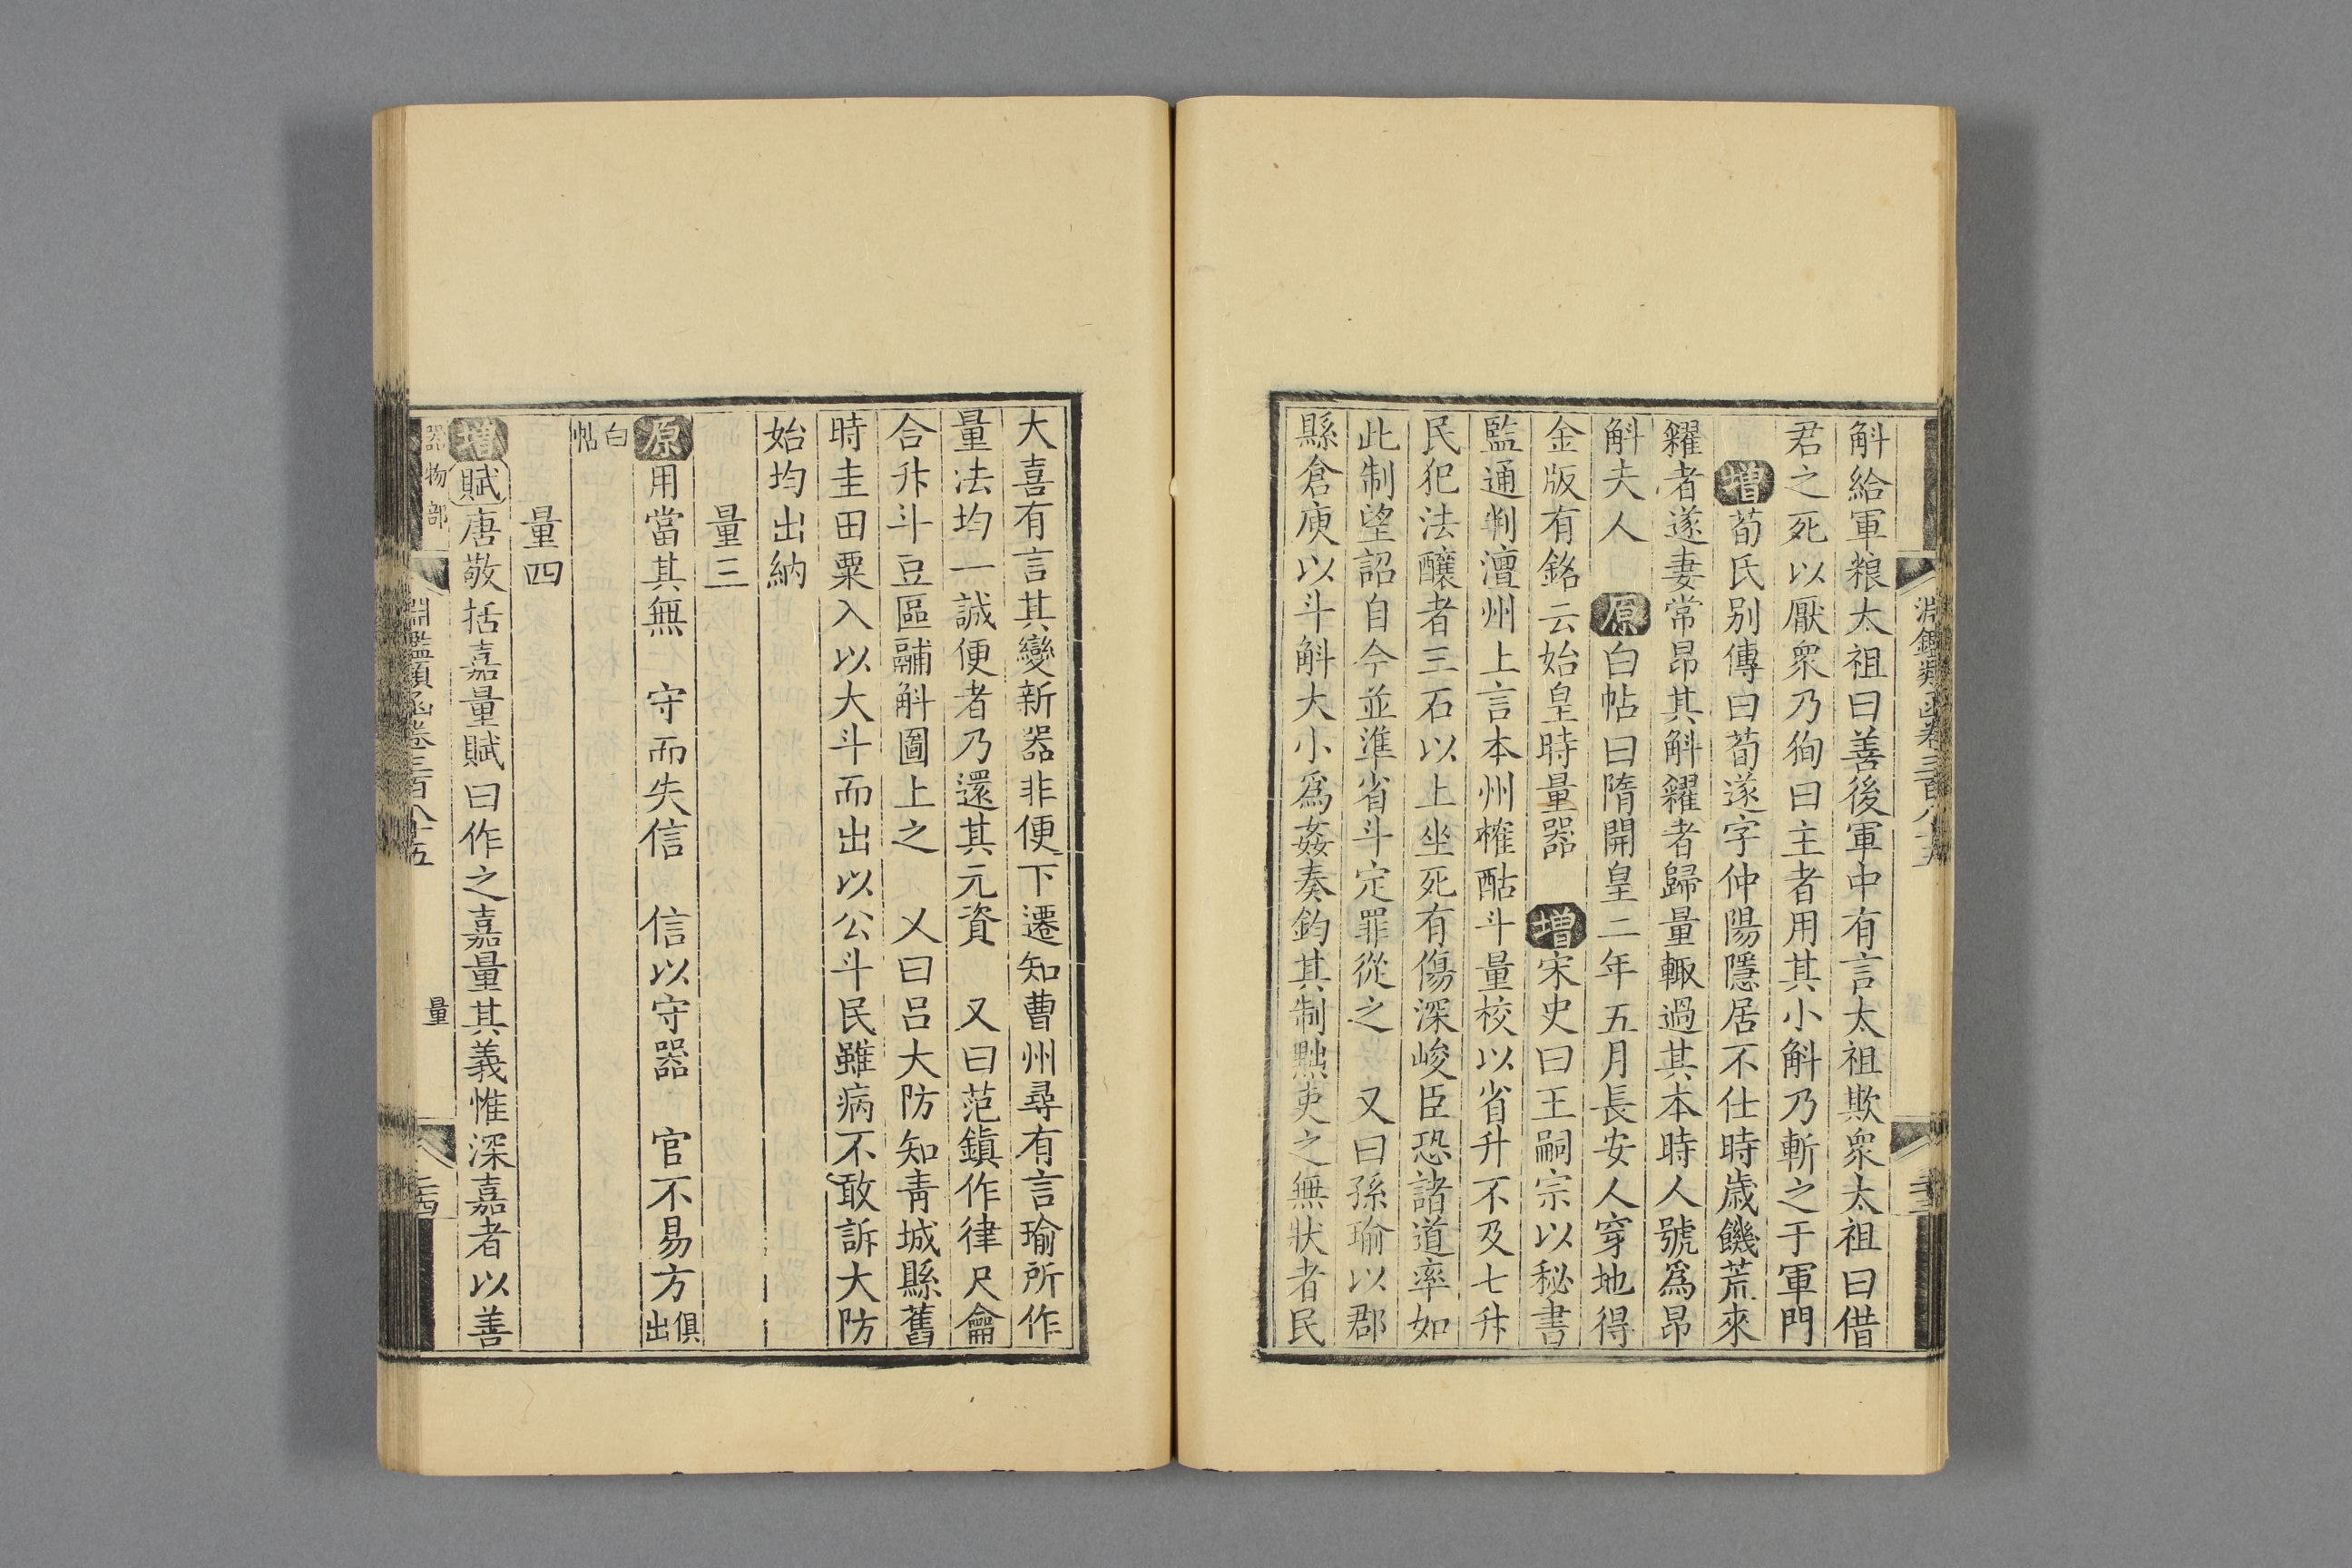 淵鑑類函卷三百八十五
斛給軍粮太祖曰善後軍中有言太祖欺衆太祖曰借
君之死以厭衆乃狥曰主者用其小斛乃斬之于軍門
增荀氏別傳曰荀遂字仲陽隱居不仕時歲饑荒來
糴者遂妻常昂其斛糴者歸量輙過其本時人號爲昂
斛夫人 原白帖曰隋開皇二年五月長安人穿地得
金版有銘云始皇時量器 增宋史曰王嗣宗以秘書
監通判澶州上言本州榷酤斗量校以省升不及七升
民犯法釀者三石以上坐死有傷深峻臣恐諸道率如
此制望詔自今並準省斗定罪從之 又曰孫瑜以郡
縣倉庾以斗斛大小爲姦奏鈞其制黠吏之無狀者民
大喜有言其變新器非便下遷知曹州尋有言瑜所作
量法均一誠便者乃還其元資 又曰范鎮作律尺龠
合升斗豆區鬴斛圖上之 又曰呂大防知青城縣舊
時圭田粟入以大斗而出以公斗民雖病不敢訴大防
始均出納
量三
原用當其無 守而失信 信以守器 官不易方俱出
白帖
量四
增賦唐敬括嘉量賦曰作之嘉量其義惟深嘉者以善
器物部 淵鑑類函卷三百八十五 量 二十四